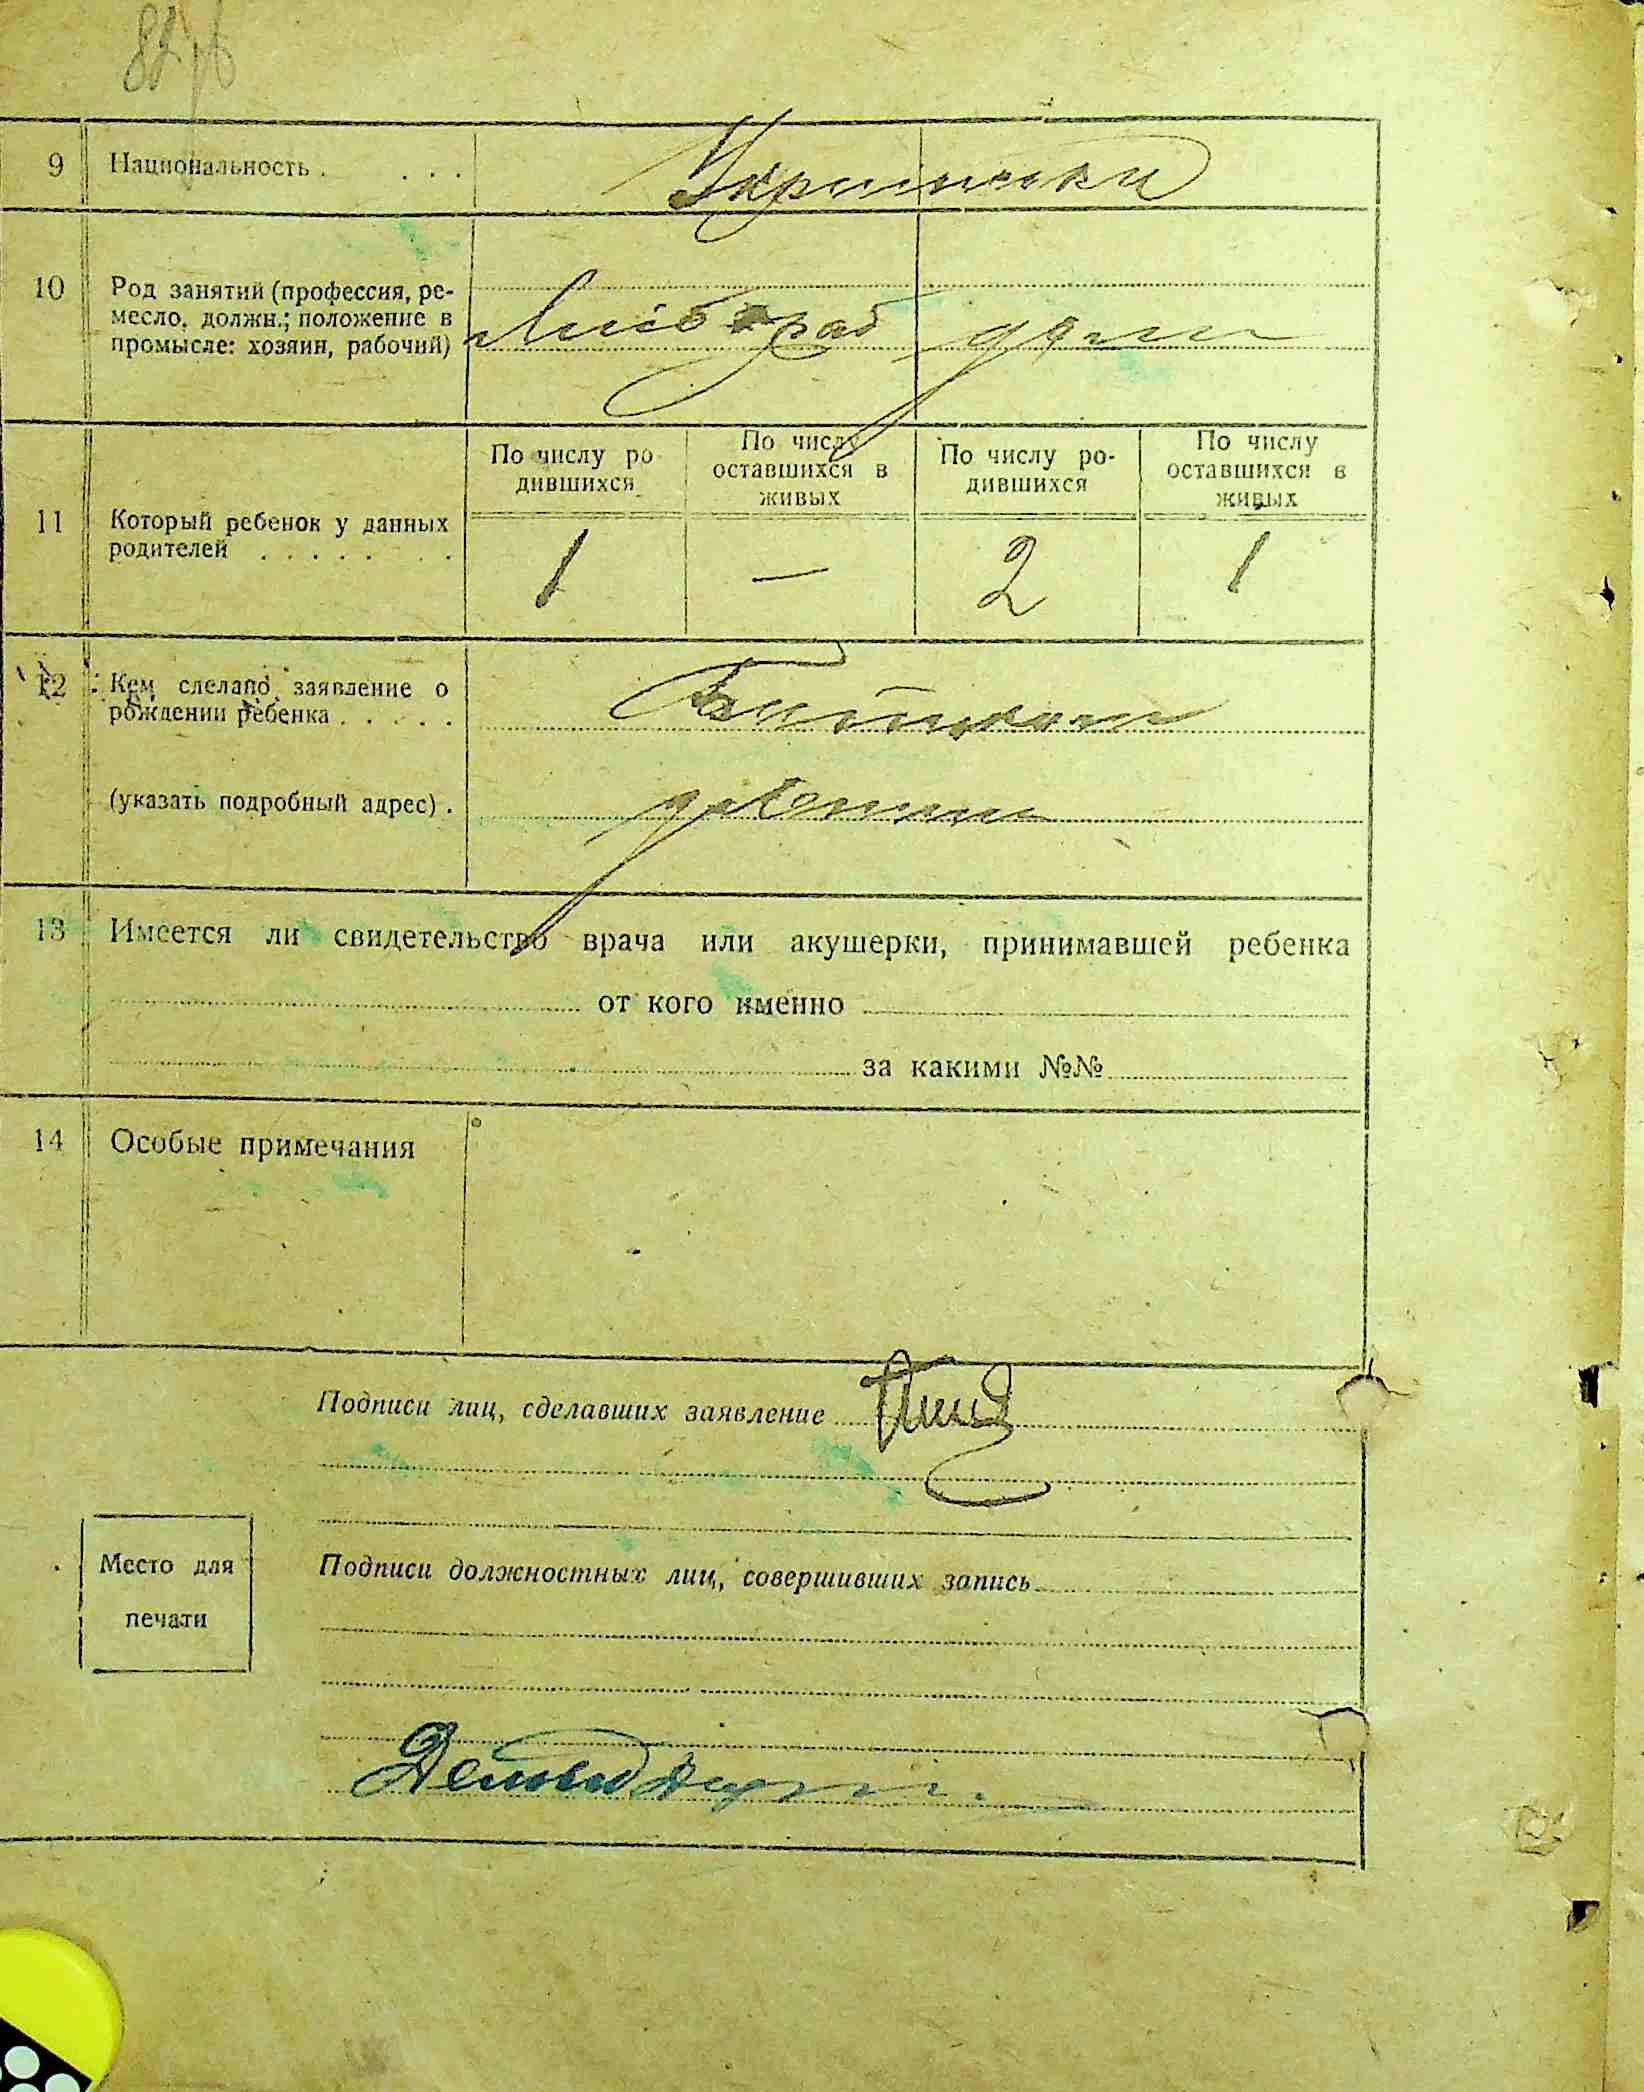 9 Национальность . . . .
10 Род занятий (профессия, ре-
месло, должн.; положение в
промысле: хозяин, рабочий)
раб
11 Который ребенок у данных
родителей . . . . . . .
По числу ро-
дившихся
По числу
оставшихся в
живых
По числу ро-
дившихся
По числу
оставшихся в
живых
1 — 2 1
12 Кем сделано заявление о
рождении ребенка . . . . .
(указать подробный адрес) .
13 Имеется ли свидетельство врача или акушерки, принимавшей ребенка
от кого именно
за какими №№
14 Особые примечания
Подписи лиц, сделавших заявление
Место для
печати
Подписи должностных лиц, совершивших запись